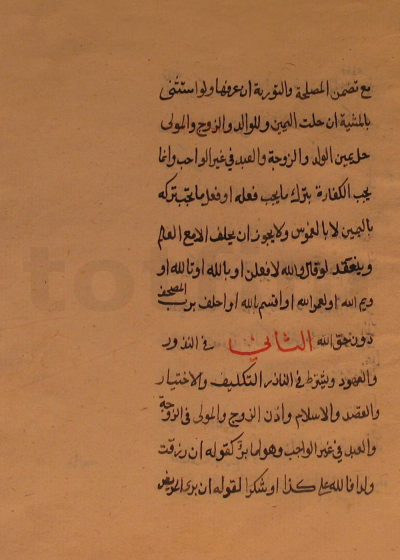 مع تضمن المصلحة والتورية ان عرفها ولو استثنى
بالمشية انحلت اليمين وللوالد والزوج والمولى
حل يمين الولد والزوجة والعبد في غير الواجب وانما
يجب الكفارة بترك ما يجب فعله او فعل ما يجب تركه
باليمين لا بالغموس ولا يجوز ان يحلف الا مع العلم
وينعقد لو قال والله لافعلن او بالله او تالله او
ويم الله او لعمر الله او اقسم بالله او احلف برب المصحف
دون حق الله الثاني في النذور
والعهود ويشترط في الناذر التكليف والاختيار
والقصد والاسلام واذن الزوج والمولى في الزوجة
والعبد في غير الواجب وهو اما بر كقوله ان رزقت
ولدا فلله علي كذا او شكرا لقوله ان برئ المريض